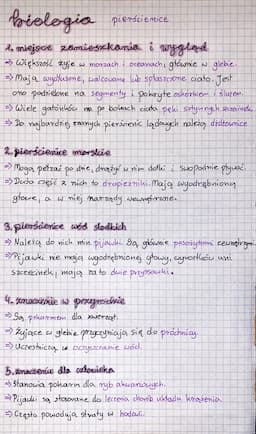 biologia pierścienice
1. miejsce zamieszkania i wygląd
⇒ Większość żyje w morzach i oceanach, głównie w glebie.
⇒ Mają wydłużone, walcowate lub spłaszczone ciało. Jest
ono podzielone na segmenty i pokryte oskórkiem i śluzem.
⇒ Wiele gatunków ma po bokach ciała pęki sztywnych szczecinek.
⇒ Do najbardziej znanych pierścienic lądowych należą dżdżownice
2. pierścienice morskie
⇒ Mogą pełzać po dnie, drążyć w nim dołki i swobodnie pływać.
⇒ Duża część z nich to drapieżniki. Mają wyodrębnioną
głowę, a w niej narządy wewnętrzne.
3. pierścienice wód słodkich
⇒ Należą do nich min. pijawki. Są głównie pasożytami zewnętrznymi.
⇒ Pijawki nie mają wyodrębnionej głowy, wyrostków ani
szczecinek, mają za to dwie przyssawki.
4. znaczenie w przyrodzie
⇒ Są pokarmem dla zwierząt.
⇒ Żyjące w glebie przyczyniają się do próchnicy.
⇒ Uczestniczą w oczyszczanie wód.
5. znaczenie dla człowieka
⇒ Stanowią pokarm dla ryb akwariowych.
⇒ Pijawki są stosowane do leczenia chorób układu krążenia.
⇒ Często powodują straty w hodowli.